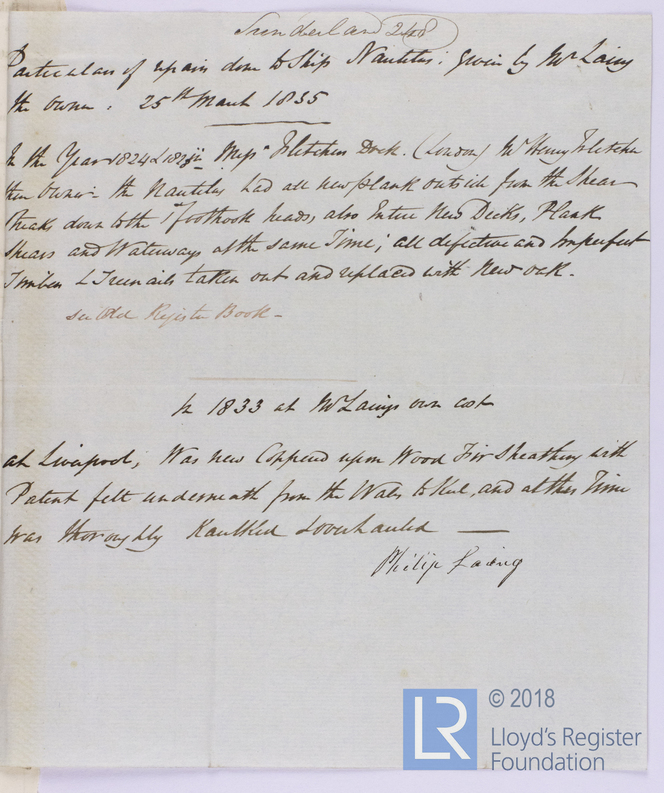 Sunderland 248
Particulars of repairs done to Ship Nautilus; given by Mr Laing
the owner. 25th March 1835
In the Year 1824 & 1825 in Messrs Fletchers Dock. (London) Mr Henry Fletcher
then owner - the Nautilus had all new plank outside from the Shear
streaks down to the 1st foothook heads, also Entire New Decks, Plank
Shears and Waterways at the same Time; all defective and Imperfect
Timbers & Treenails taken out and replaced with New oak.
see Old Register Book -
In 1833 at Mr Laings own cost
at Liverpool, Was new Coppered upon Wood Fir Sheathing with
Patent felt underneath from the Wales to Keel, and at this Time
was thoroughly Kaulked & overhauled —
Philip Laing
LR
© 2018
Lloyd's Register
Foundation